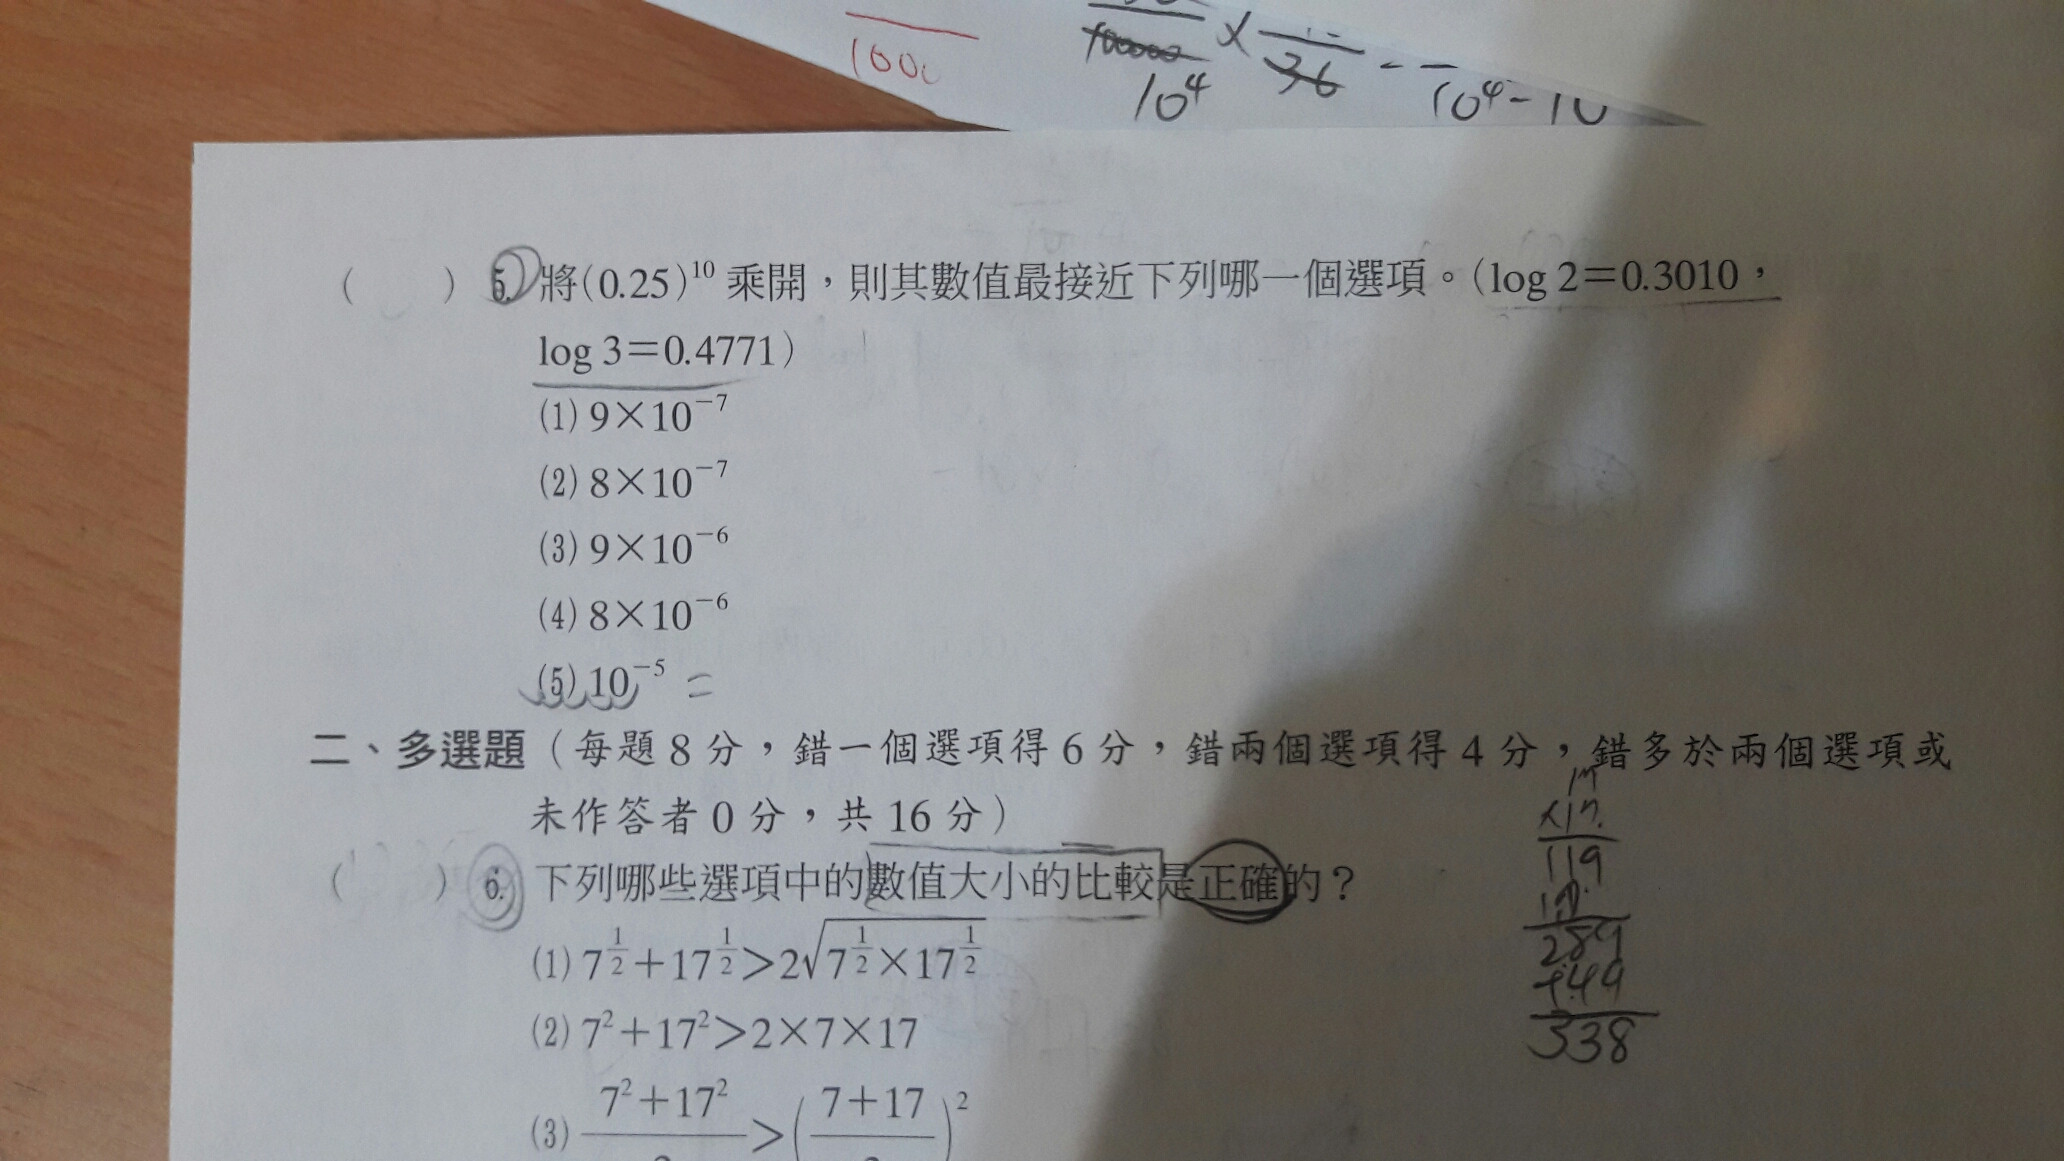 1000
10000 × 36 -
10⁴ 10⁴-10
( ) 5. 將(0.25)¹⁰ 乘開，則其數值最接近下列哪一個選項。(log 2=0.3010，
log 3=0.4771)
(1) 9×10⁻⁷
(2) 8×10⁻⁷
(3) 9×10⁻⁶
(4) 8×10⁻⁶
(5) 10⁻⁵ =
二、多選題（每題 8 分，錯一個選項得 6 分，錯兩個選項得 4 分，錯多於兩個選項或
未作答者 0 分，共 16 分）
( ) 6. 下列哪些選項中的數值大小的比較是正確的？
(1) 7^(1/2)+17^(1/2)>2√(7^(1/2)×17^(1/2))
(2) 7²+17²>2×7×17
(3) (7²+17²)/ > ((7+17)/ )²
17
×17
119
17
289
+49
338